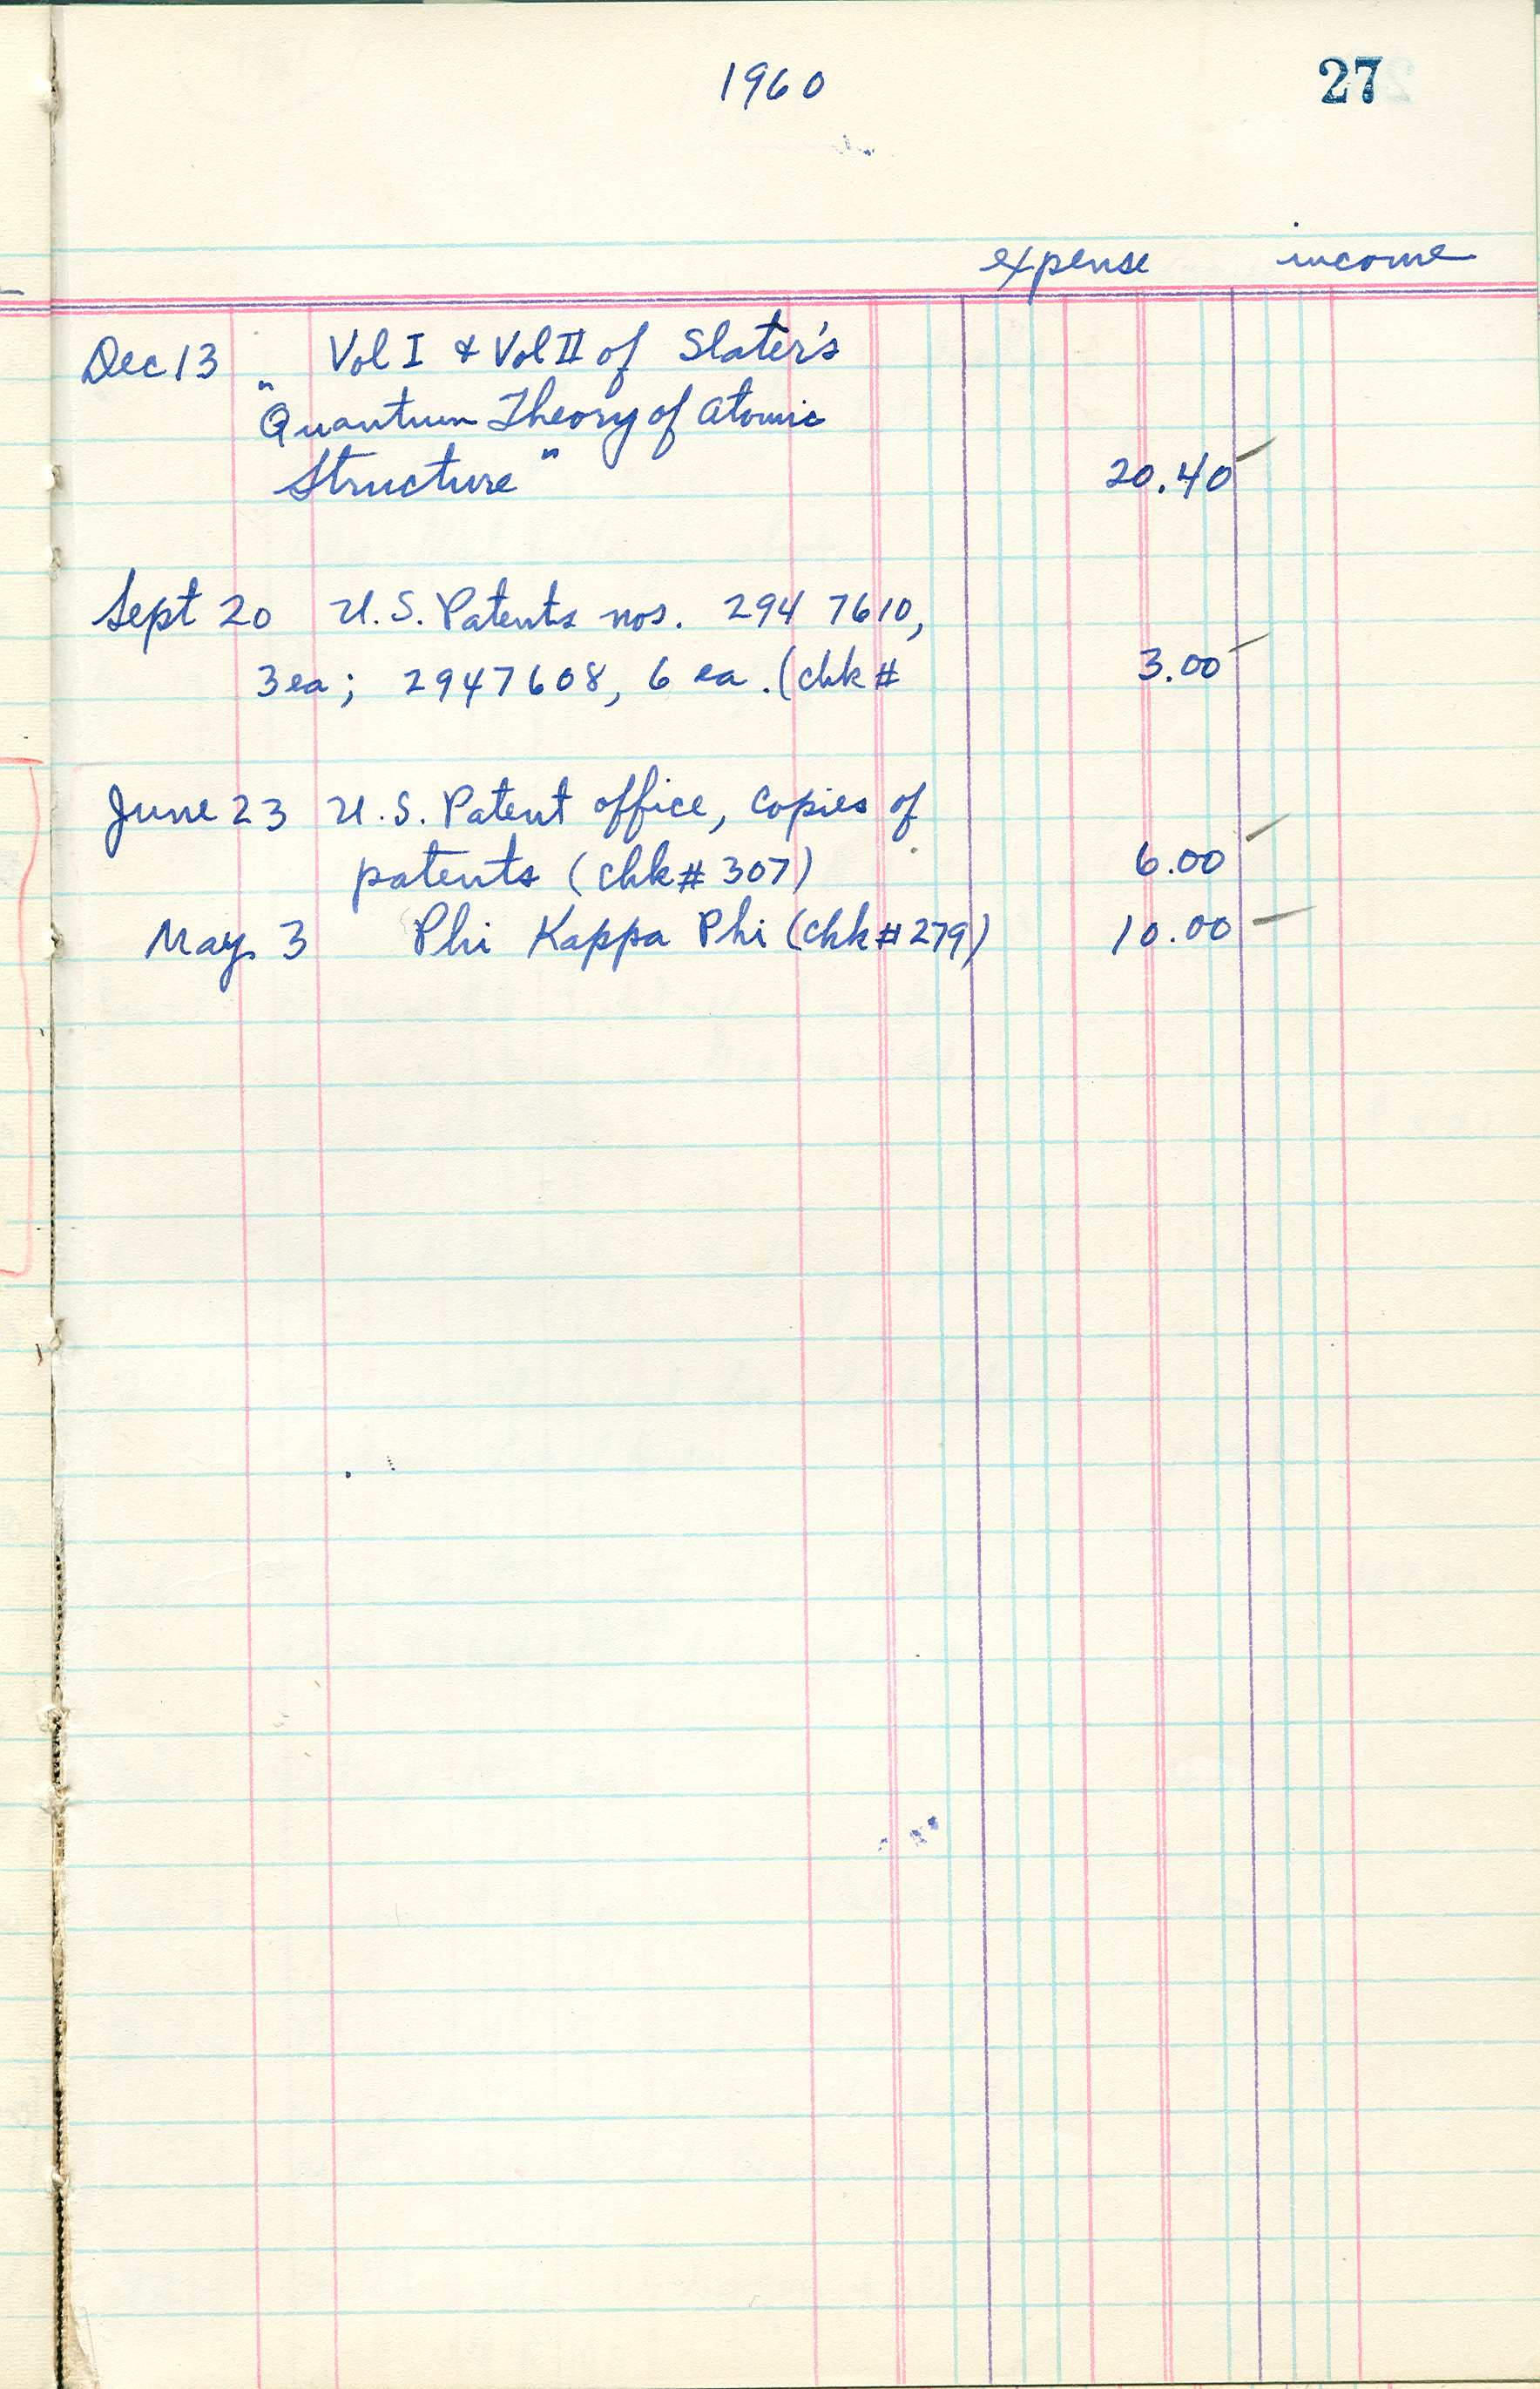 1960
27
expense income
Dec 13 Vol I & Vol II of Slater's
"Quantum Theory of Atomic
Structure" 20.40
Sept 20 U.S. Patents nos. 294 7610,
3 ea; 2947608, 6 ea. (chk # 3.00
June 23 U.S. Patent office, copies of
patents (chk # 307) 6.00
May 3 Phi Kappa Phi (chk # 279) 10.00